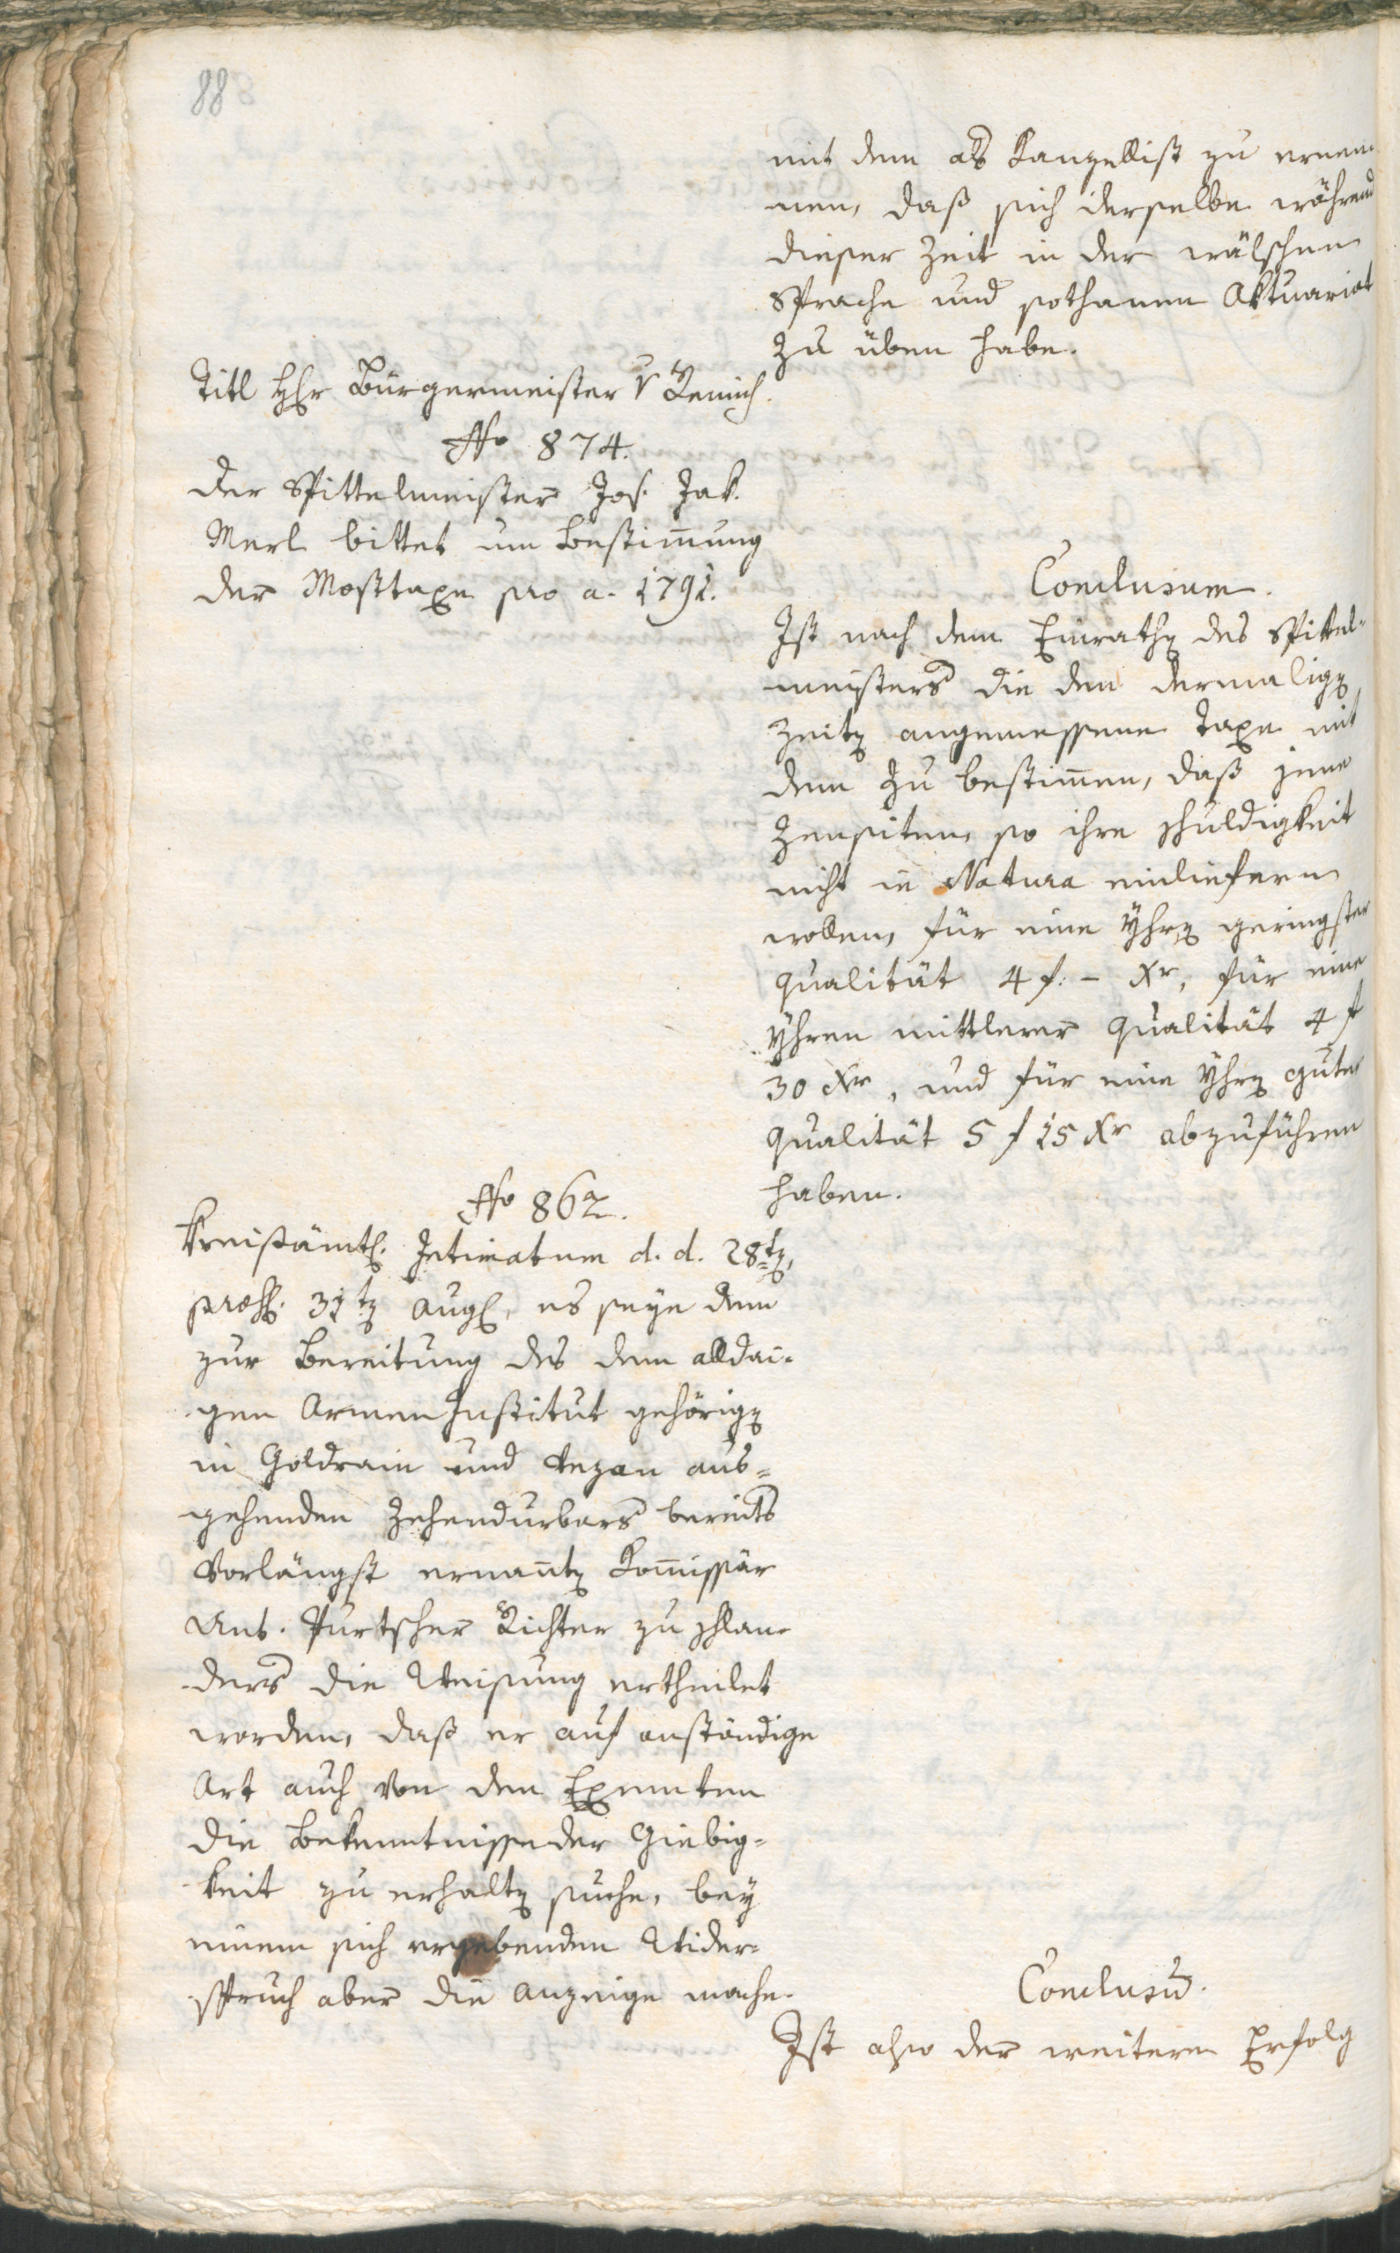 88
mit dem als Kanzellist zu ernen¬
nen, daß sich derselbe während
dieser Zeit in der wälschen
Sprache und sothanen Aktuariat
zu üben habe.
Titl H Hr Bürgermeister v Remich.
No 874.
Der Spittelmeister Jos. Jak.
Merl bittet um Bestim̄ung
der Mosttaxe pro a. 1791.
Conclusum.
Ist nach dem Einrathen des Spittel¬
meisters die den dermaligen
Zeiten angemessene Taxe mit
dem zu bestim̄en, daß jene
Zensiten, so ihre Schuldigkeit
nicht in Natura einliefern
wollen, für eine Yhren geringster
Qualität 4 f. – Xr, für eine
Yhren mittlerer Qualität 4 f
30 Xr, und für eine Yhren guter
Qualität 5 f 15 Xr abzuführen
haben.
No 862.
Kreisämtl. Intimatum d. d. 28ten,
præs. 31ten Aug., es seye dem
zur Bereitung des dem alldai¬
gen Armen Institut gehörigen
in Goldrain und Vezan aus¬
gehenden Zehendurbars bereits
vorlängst ernan̄ten Kom̄issär
Ant. Purtscher Richter zu Schlan¬
ders die Weisung ertheilet
worden, daß er auf anständige
Art auch von den Exemten
die Bekenntnisse der Giebig¬
keit zu erhalten suche, bey
einem sich ergebenden Wider¬
spruch aber die Anzeige mache.
Conclusum̄.
Ist also der weitere Erfolg